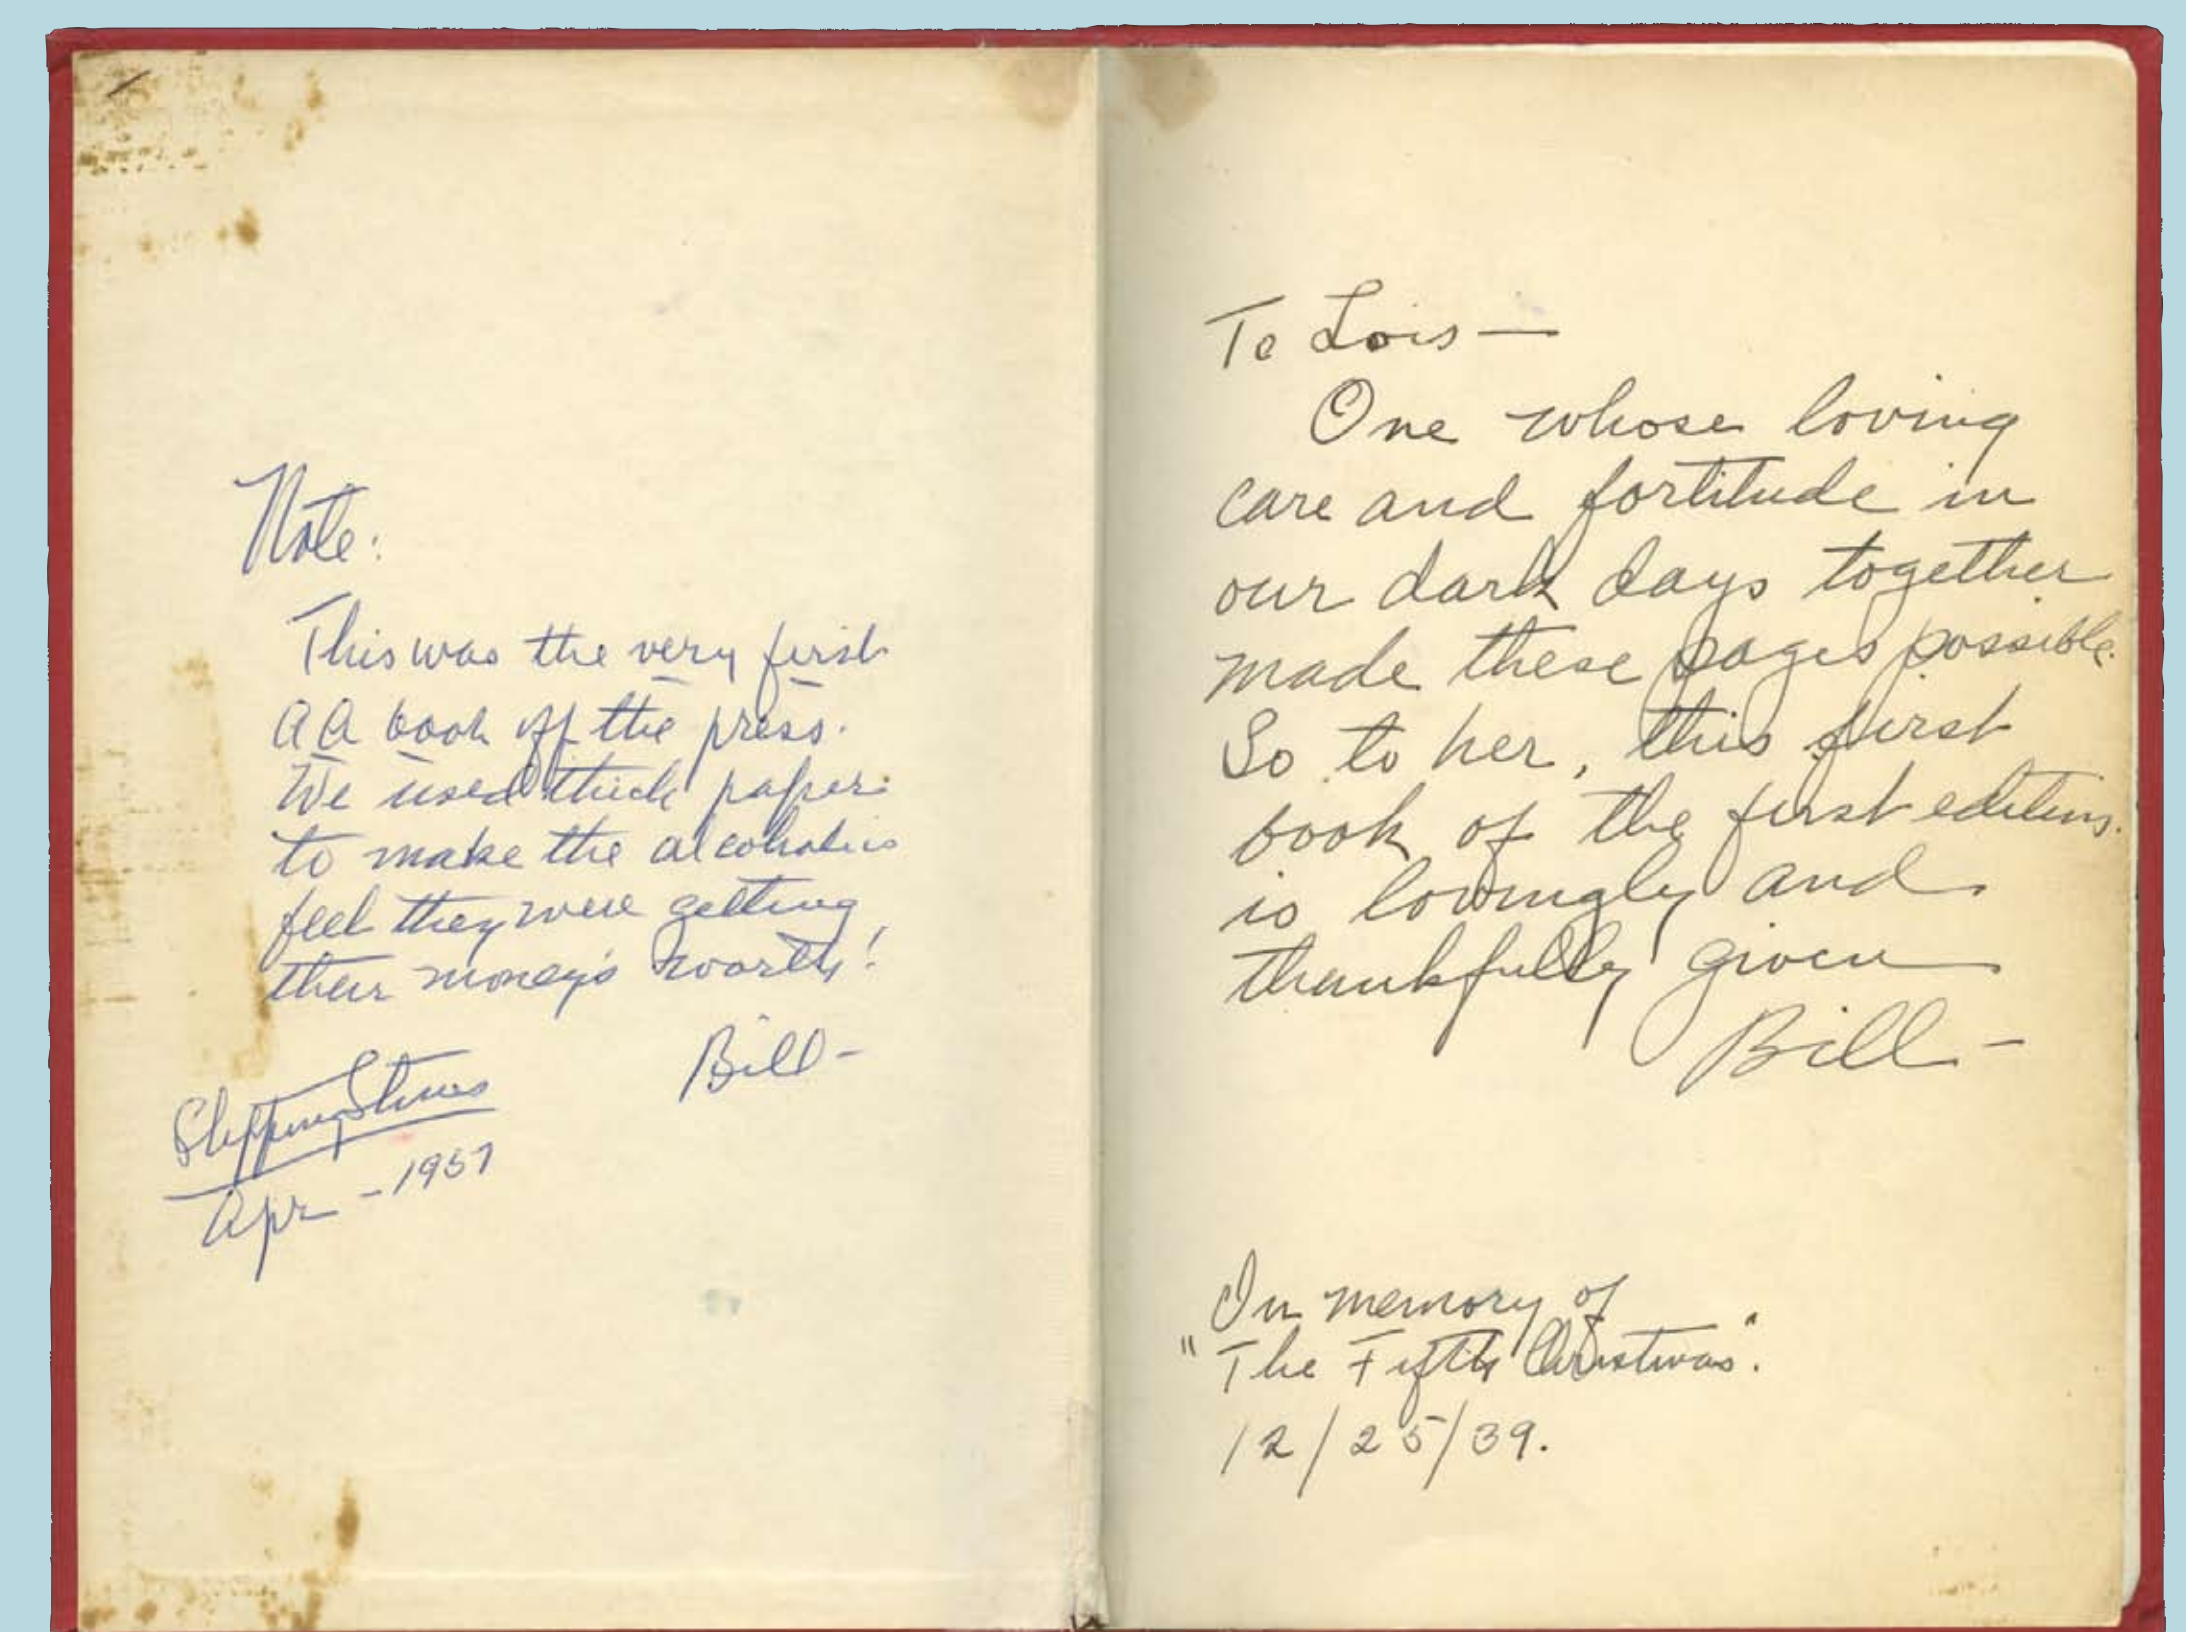 Note:
This was the very first
AA book off the press.
We used thick paper
to make the alcoholics
feel they were getting
their money's worth!
Bill-
Stepping Stones
Apr - 1957
To Lois —
One whose loving
care and fortitude in
our dark days together
made these pages possible.
So to her, this first
book of the first editions
is lovingly and
thankfully given
Bill -
In memory of
"The Fifth Christmas".
12/25/39.